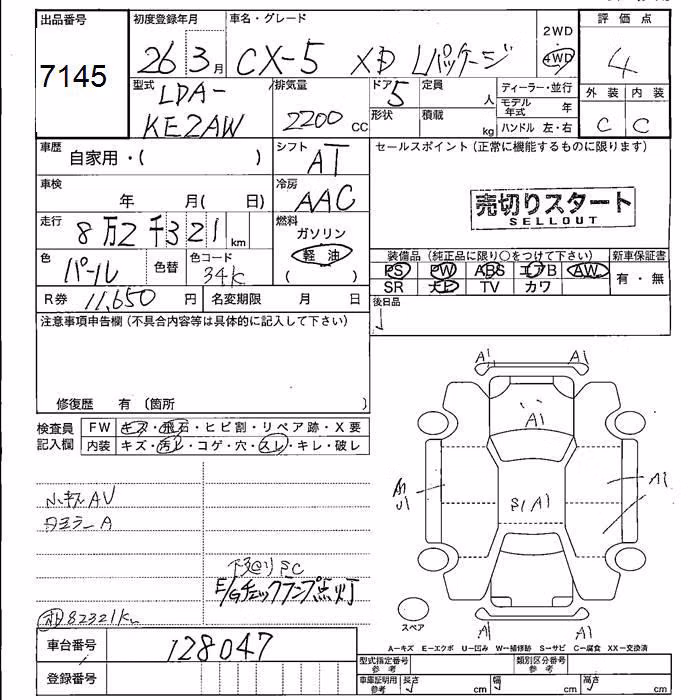 出品番号
7145
初度登録年月
26 3月
車名・グレード
CX-5 XD Lパッケージ
2WD
4WD
評価点
4
外装 内装
C C
型式
LDA-
KE2AW
排気量
2200 CC
ドア
5
形状
定員
人
積載
kg
ディーラー・並行
モデル年式 年
ハンドル 左・右
車歴
自家用・( )
シフト
AT
セールスポイント(正常に機能するものに限ります)
売切りスタート
SELLOUT
車検
年 月( 日)
冷房
AAC
走行
8万2千321km
燃料
ガソリン
軽油
( )
色
パール
色替
色コード
34K
装備品(純正品に限り○をつけて下さい) 新車保証書
PS PW ABS エアB AW 有・無
SR ナビ TV カワ
R券 11,650円
名変期限 月 日
後日品
注意事項申告欄(不具合内容等は具体的に記入して下さい)
修復歴 有 (箇所 )
検査員
記入欄
FW キズ・飛石・ヒビ割・リペア跡・X要
内装 キズ・汚レ・コゲ・穴・スレ・キレ・破レ
小キズAU
タミラーA
下廻りSC
E/Gチェックランプ点灯
82321Km
A1 A1
A1
A1
U1
S1 A1
A1
A1 A1
スペア
A−キズ E−エクボ U−凹み W−補修跡 S−サビ C−腐食 XX−交換済
車台番号
128047
登録番号
型式指定番号
参考
類別区分番号
参考
車庫証明用
参考
長さ cm 幅 cm 高さ cm